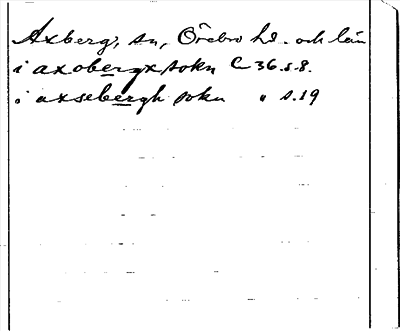 Axberg, sn, Örebro hd. och län
i axobergx sokn C 36.s.8.
i axsebergh sokn " s.19